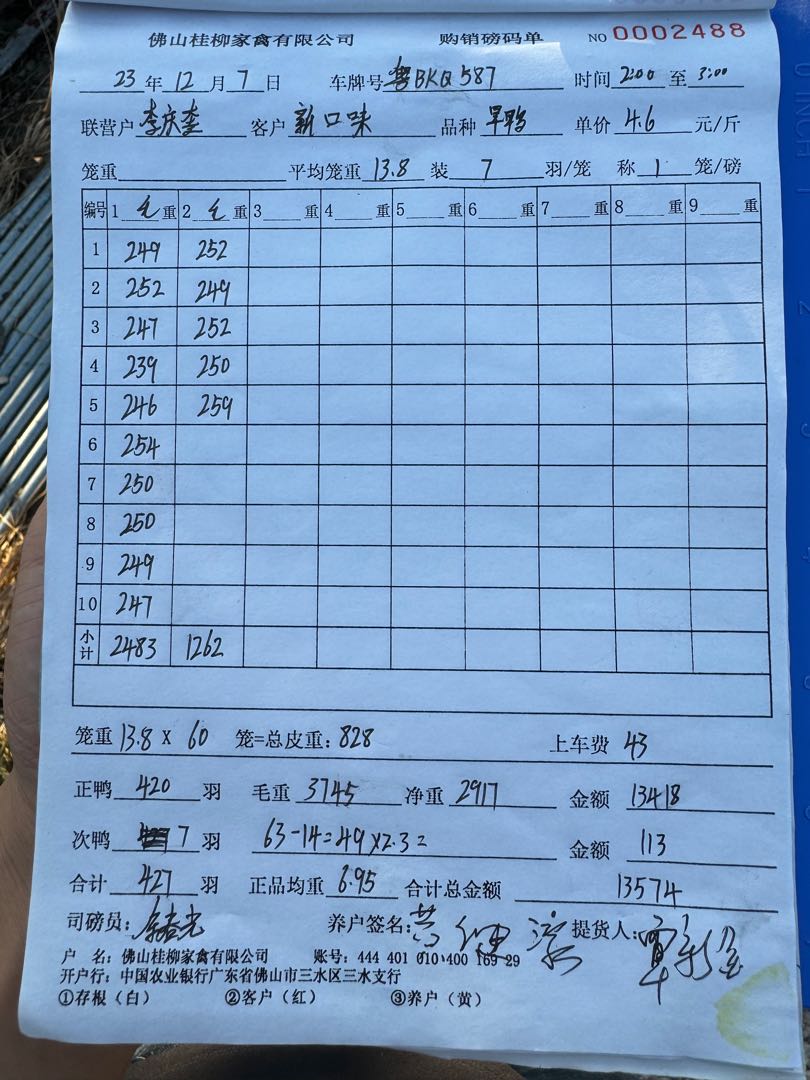 佛山桂柳家禽有限公司 购销磅码单 NO 0002488
23 年 12 月 7 日 车牌号 粤BKQ587 时间 2:00 至 3:00
联营户 李庆奎 客户 新口味 品种 旱鸭 单价 4.6 元/斤
笼重 平均笼重 13.8 装 7 羽/笼 称 1 笼/磅
编号 1 毛 重 2 毛 重 3 重 4 重 5 重 6 重 7 重 8 重 9 重
1 249 252
2 252 249
3 247 252
4 239 250
5 246 259
6 254
7 250
8 250
9 249
10 247
小计 2483 1262
笼重 13.8 X 60 笼=总皮重: 828 上车费 43
正鸭 420 羽 毛重 3745 净重 2917 金额 13418
次鸭 7 羽 63-14=49×2.3= 金额 113
合计 427 羽 正品均重 6.95 合计总金额 13574
司磅员: 养户签名: 提货人:
户 名: 佛山桂柳家禽有限公司 账号: 444 401 010 400 169 29
开户行: 中国农业银行广东省佛山市三水区三水支行
①存根(白) ②客户(红) ③养户(黄)